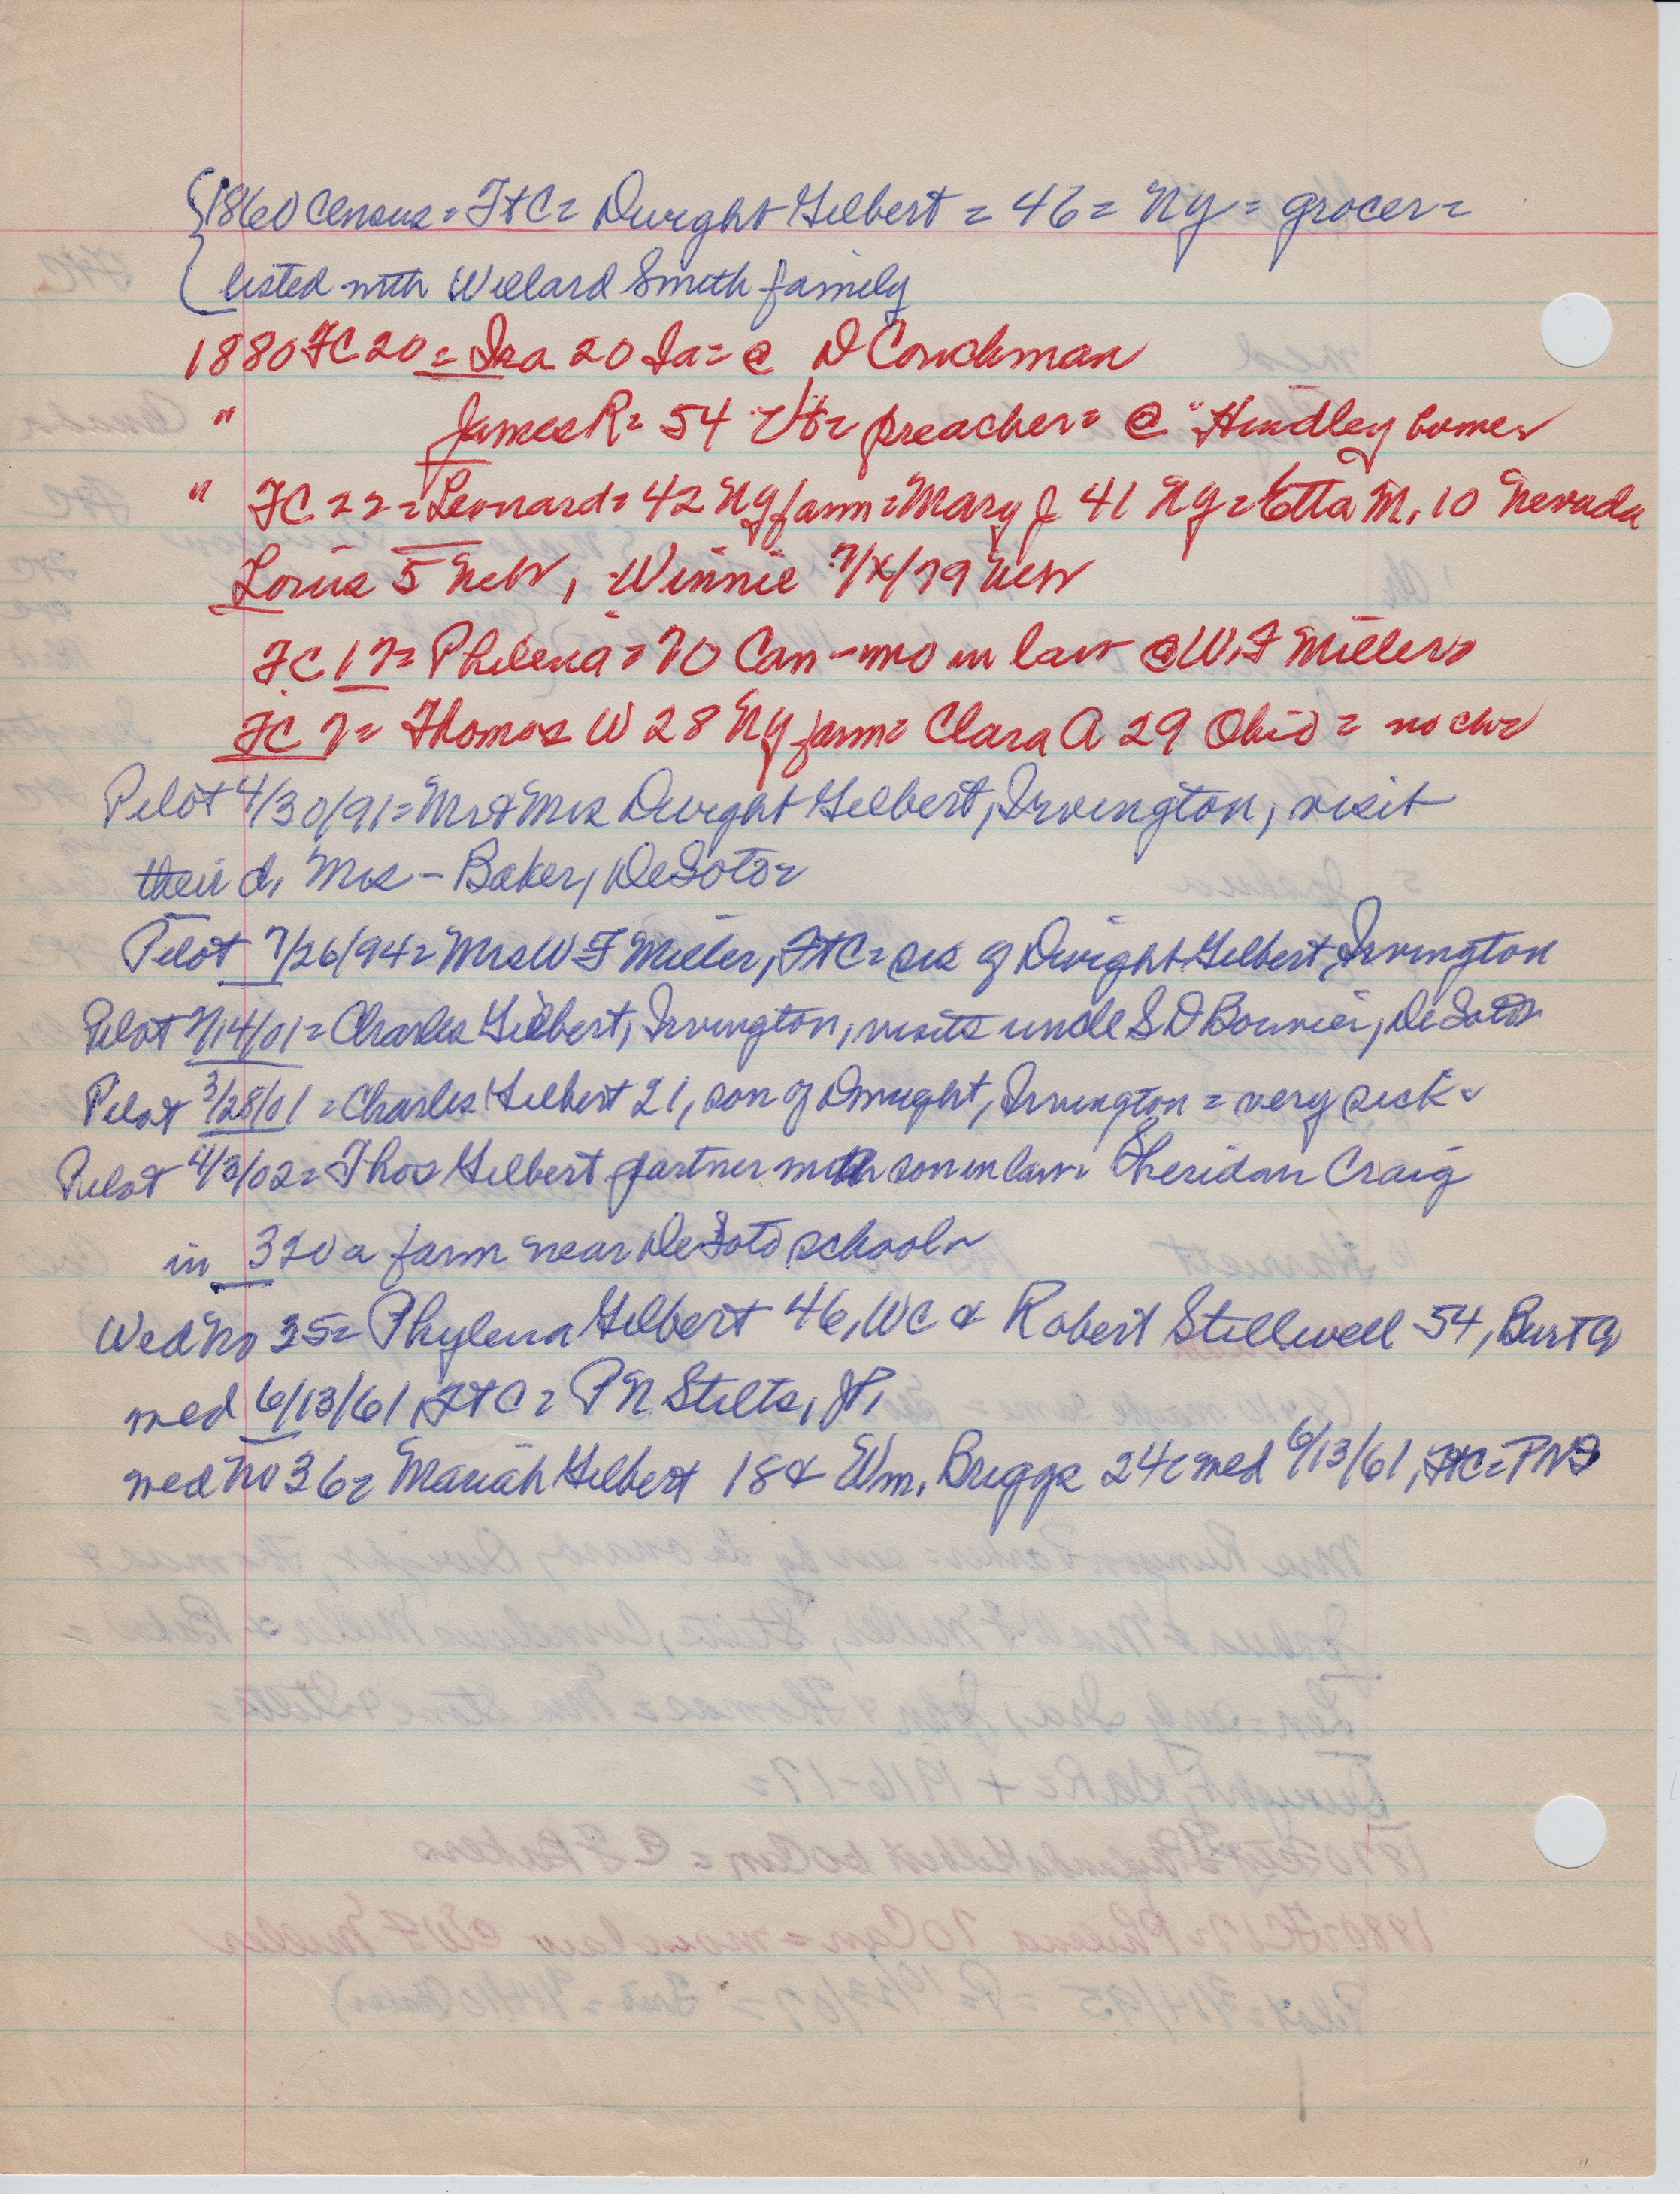 1860 Census = FtC = Dwight Gilbert = 46 = NY = grocer =
listed with Willard Smith family
1880 FC 20 = Ira 20 Ia = @ D Couchman
" James R = 54 Vt = preacher = @ Hindley home
" FC 22 = Leonard = 42 NY farm = Mary J 41 NY = Etta M, 10 Nevada
Louis 5 Neb, Winnie 7/X/79 Neb
FC 17 = Philena = 70 Can - mo in law @ W.F Millers
FC 7 = Thomas W 28 NY farm = Clara A 29 Ohio = no ch =
Pilot 4/30/91 = Mr & Mrs Dwight Gilbert, Irvington, visit
their d, Mrs - Baker, DeSoto =
Pilot 7/26/94 = Mrs W F Miller, FtC = sis of Dwight Gilbert, Irvington
Pilot 2/14/01 = Charles Gilbert, Irvington, visits uncle S D Bouvier, DeSoto
Pilot 3/28/01 = Charles Gilbert 21, son of Dwight, Irvington = very sick =
Pilot 4/3/02 = Thos Gilbert partner with son in law = Sheridan Craig
in 320 a farm near DeSoto school =
Wed No 35 = Phylena Gilbert 46, WC & Robert Stillwell 54, Burt C
med 6/13/61, FtC = P N Stilts, JP,
med No 36 = Mariah Gilbert 18 & Wm. Briggs 24 = med 6/13/61, FtC = PNS